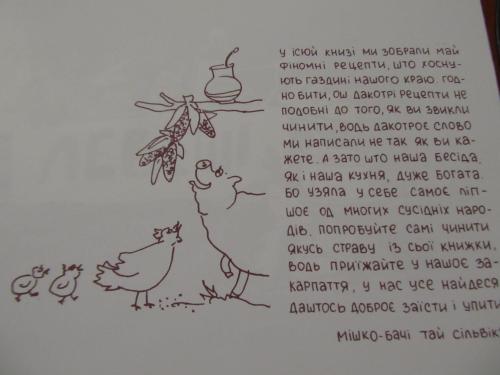 У ІСЮЙ КНИЗІ МИ ЗОБРАЛИ МАЙ
ФІНОМНІ РЕЦЕПТИ, ШТО ХОСНУ-
ЮТЬ ГАЗДИНІ НАШОГО КРАЮ. ГОД-
НО БИТИ, ОШ ДАКОТРІ РЕЦЕПТИ НЕ
ПОДОБНІ ДО ТОГО, ЯК ВИ ЗВИКЛИ
ЧИНИТИ, ВОДЬ ДАКОТРОЄ СЛОВО
МИ НАПИСАЛИ НЕ ТАК ЯК ВИ КА-
ЖЕТЕ. А ЗАТО ШТО НАША БЕСІДА,
ЯК І НАША КУХНЯ, ДУЖЕ БОГАТА.
БО УЗЯЛА У СЕБЕ САМОЄ ЛІП-
ШОЄ ОД МНОГИХ СУСІДНІХ НАРО-
ДІВ. ПОПРОБУЙТЕ САМІ ЧИНИТИ
ЯКУСЬ СТРАВУ ІЗ СЬОЇ КНИЖКИ,
ВОДЬ ПРИЇЖАЙТЕ У НАШОЄ ЗА-
КАРПАТТЯ, У НАС УСЕ НАЙДЕСЯ
ДАШТОСЬ ДОБРОЄ ЗАЇСТИ І УПИТИ
МІШКО-БАЧІ ТАЙ СІЛЬВІК